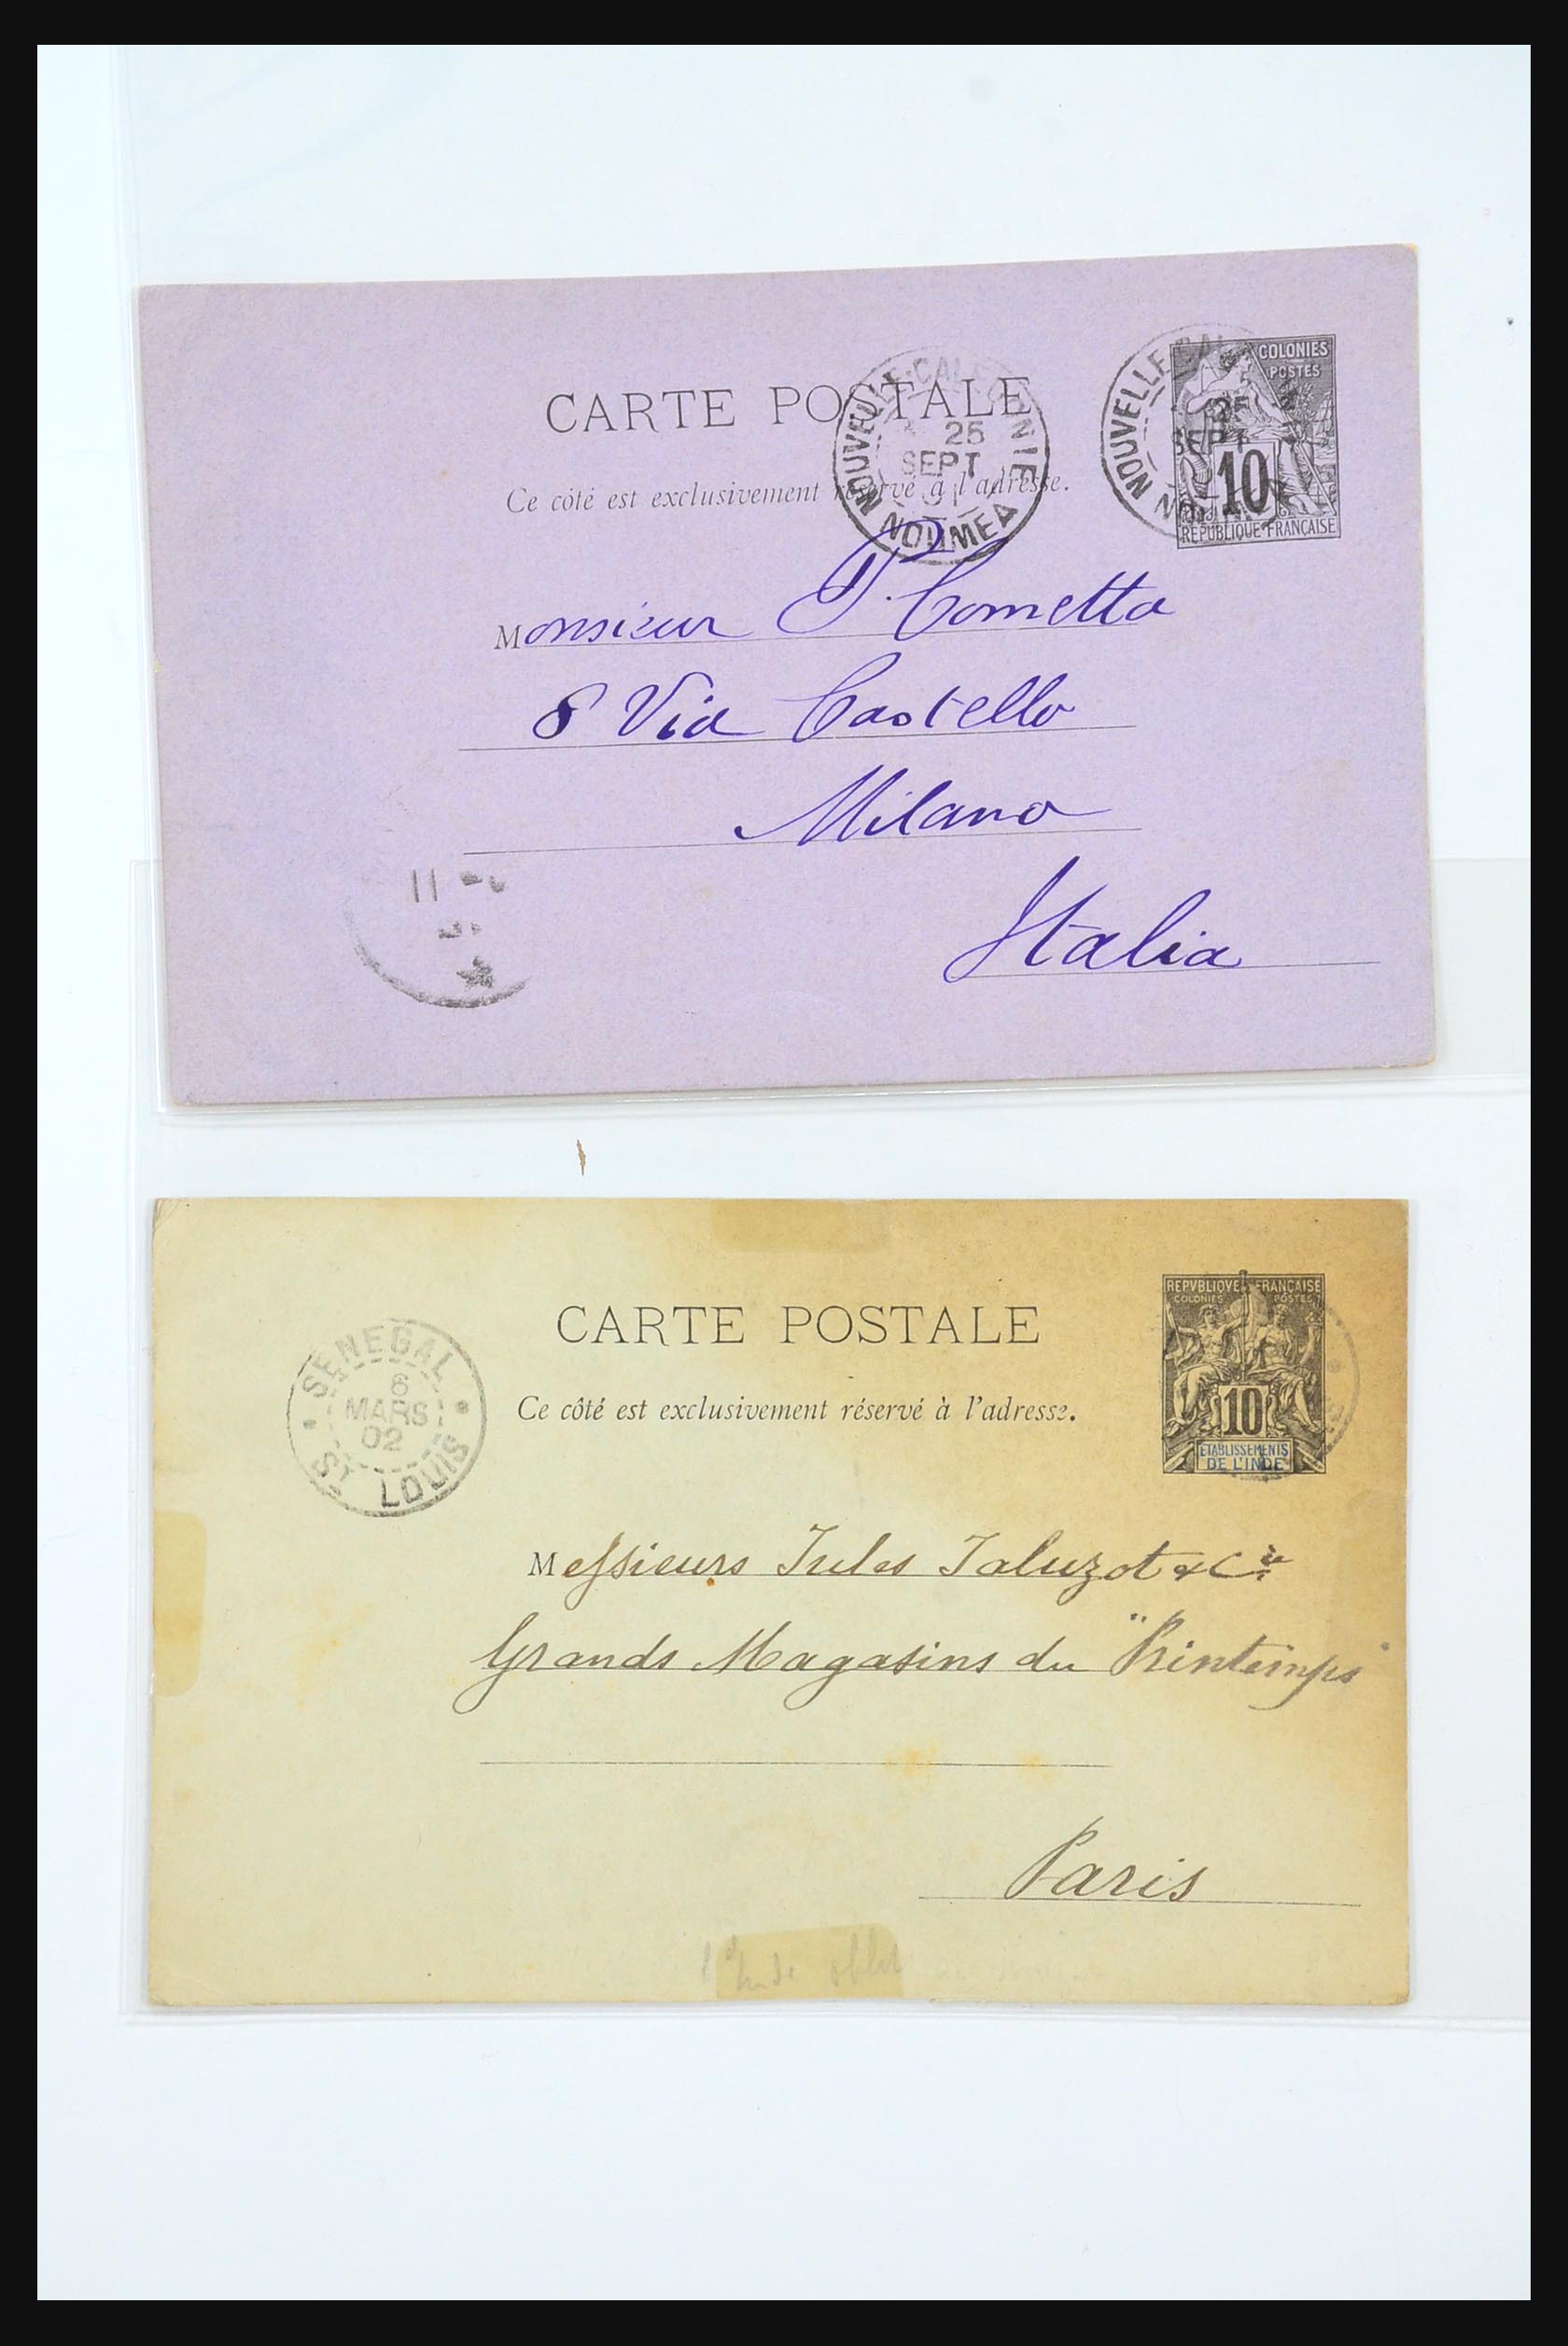 CARTE POSTALE
Ce côté est exclusivement réservé à l'adresse.
NOUVELLE-CALEDONIE
25
SEPT
91
NOUMEA
NOUVELLE CAL
25
SEPT
COLONIES
POSTES
10
REPUBLIQUE FRANÇAISE
Monsieur P. Cometta
8 Via Castello
Milano
Italia
11
CARTE POSTALE
Ce côté est exclusivement réservé à l'adresse.
SENEGAL
6
MARS
02
ST LOUIS
REPVBLIQVE FRANÇAISE
COLONIES POSTES
10
ETABLISSEMENTS
DE L'INDE
Messieurs Jules Jaluzot & Cie
Grands Magasins du "Printemps"
Paris